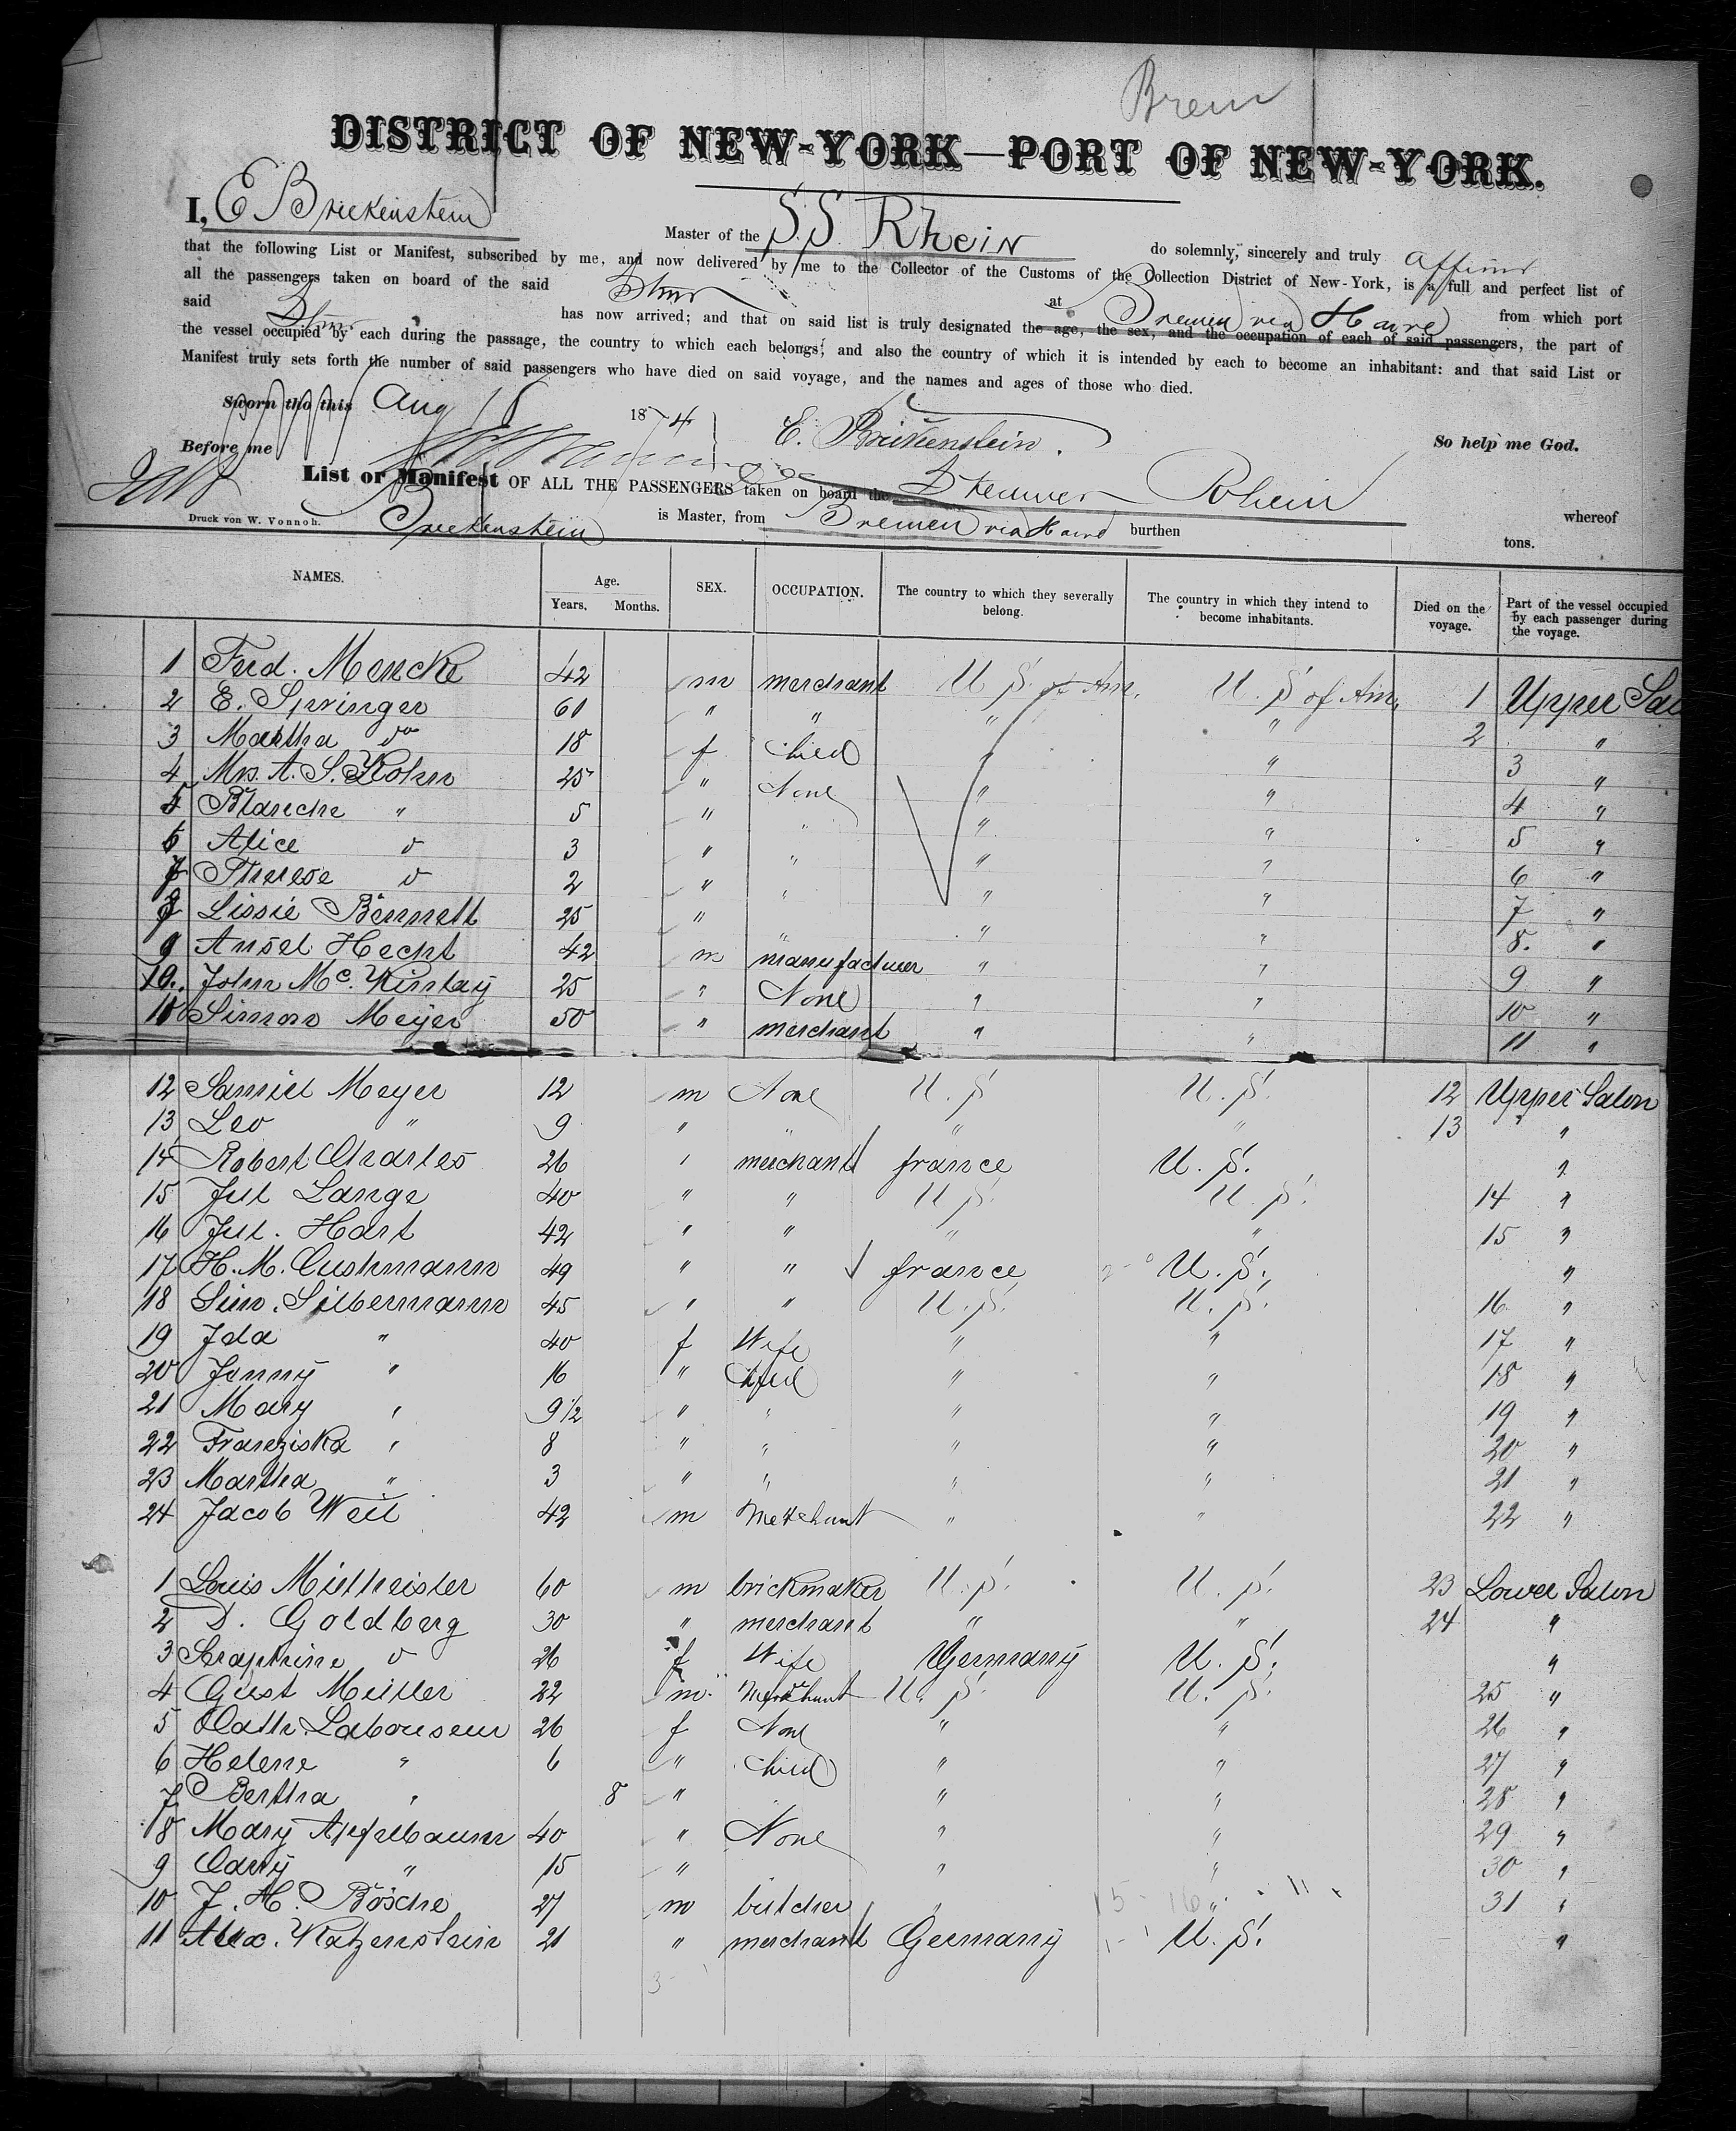 Brem
DISTRICT OF NEW-YORK—PORT OF NEW-YORK.
I, E Brickenstein Master of the S.S. Rhein do solemnly, sincerely and truly affirm
that the following List or Manifest, subscribed by me, and now delivered by me to the Collector of the Customs of the Collection District of New-York, is a full and perfect list of
all the passengers taken on board of the said Stmr at Bremen via Havre from which port
said Stmr has now arrived; and that on said list is truly designated the age, the sex, and the occupation of each of said passengers, the part of
the vessel occupied by each during the passage, the country to which each belongs, and also the country of which it is intended by each to become an inhabitant: and that said List or
Manifest truly sets forth the number of said passengers who have died on said voyage, and the names and ages of those who died.
Sworn tho this Aug 18 1874 E. Brickenstein. So help me God.
Before me
List or Manifest OF ALL THE PASSENGERS taken on board the Steamer Rhein whereof
Druck von W. Vonnoh. Brickenstein is Master, from Bremen via Havre burthen tons.
NAMES. Age. Years, Months. SEX. OCCUPATION. The country to which they severally belong. The country in which they intend to become inhabitants. Died on the voyage. Part of the vessel occupied by each passenger during the voyage.
1 Ferd. Mencke 42 m merchant U. S. of Am. U. S. of Am. 1 Upper Sal
2 E. Springer 61 " " " " 2 "
3 Martha do 18 f Child " " 3 "
4 Mrs. A. S. Kohn 25 " None " " 4 "
5 Blanche " 5 " " " " 5 "
6 Alice do 3 " " " " 6 "
7 Therese do 2 " " " " 7 "
8 Lissie Bennett 25 " " " " 8. "
9 Ansel Hecht 42 m manufacturer " " 9 "
10. John Mc. Kinlay 25 " None " " 10 "
11 Simon Meyer 50 " merchant " " 11 "
12 Samuel Meyer 12 m None U. S. U. S. 12 Upper Salon
13 Leo " 9 " " " " 13 "
14 Robert Charles 26 " merchant france U. S. "
15 Jul Lange 40 " " U S. U. S. 14 "
16 Jul. Hart 42 " " " " 15 "
17 H. M. Cushmann 49 " " france U. S. "
18 Sim. Silbermann 45 " " U. S. U. S. 16 "
19 Ida " 40 f Wife " " 17 "
20 Jenny " 16 " Child " " 18 "
21 Mary " 9 1/2 " " " " 19 "
22 Franziska " 8 " " " " 20 "
23 Martha " 3 " " " " 21 "
24 Jacob Weil 42 m Merchant " " 22 "
1 Louis Mietheister 60 m brickmaker U. S. U. S. 23 Lower Salon
2 D. Goldberg 30 " merchant " " 24 "
3 Seraphine do 26 f Wife Germany U. S. "
4 Gust Meiller 22 m. Merchant U. S. U. S. 25 "
5 Cath. Labouseur 26 f None " " 26 "
6 Helene " 6 " Child " " 27 "
7 Bertha " 8 " " " 28 "
8 Mary Apfelbaum 40 " None " " 29 "
9 Carry " 15 " " " 30 "
10 J. H. Bösche 27 m butcher " " 31 "
11 Alex. Katzenstein 21 " merchant Germany U. S. "